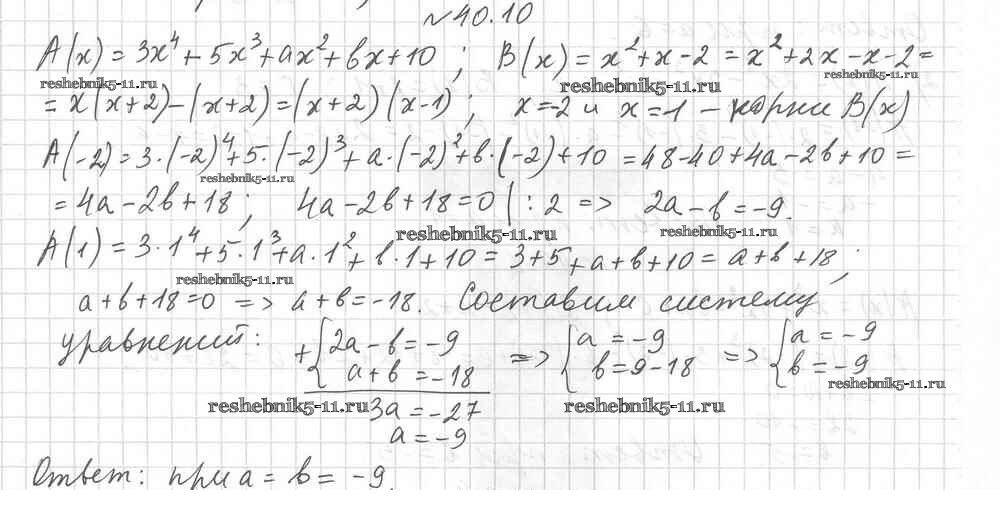 №40.10
A(x) = 3x⁴ + 5x³ + ax² + bx + 10 ; B(x) = x² + x - 2 = x² + 2x - x - 2 =
reshebnik5-11.ru reshebnik5-11.ru reshebnik5-11.ru
= x(x+2) - (x+2) = (x+2)(x-1) ; x = -2 и x = 1 – корни B(x)
A(-2) = 3·(-2)⁴ + 5·(-2)³ + a·(-2)² + b·(-2) + 10 = 48 - 40 + 4a - 2b + 10 =
reshebnik5-11.ru
= 4a - 2b + 18 ; 4a - 2b + 18 = 0 | : 2 => 2a - b = -9.
reshebnik5-11.ru reshebnik5-11.ru
A(1) = 3·1⁴ + 5·1³ + a·1² + b·1 + 10 = 3 + 5 + a + b + 10 = a + b + 18 ;
reshebnik5-11.ru
a + b + 18 = 0 => a + b = -18. Составим систему
уравнений: + { 2a - b = -9 => { a = -9 => { a = -9
a + b = -18 b = 9 - 18 b = -9
reshebnik5-11.ru
reshebnik5-11.ru 3a = -27 reshebnik5-11.ru
a = -9
Ответ: при a = b = -9.